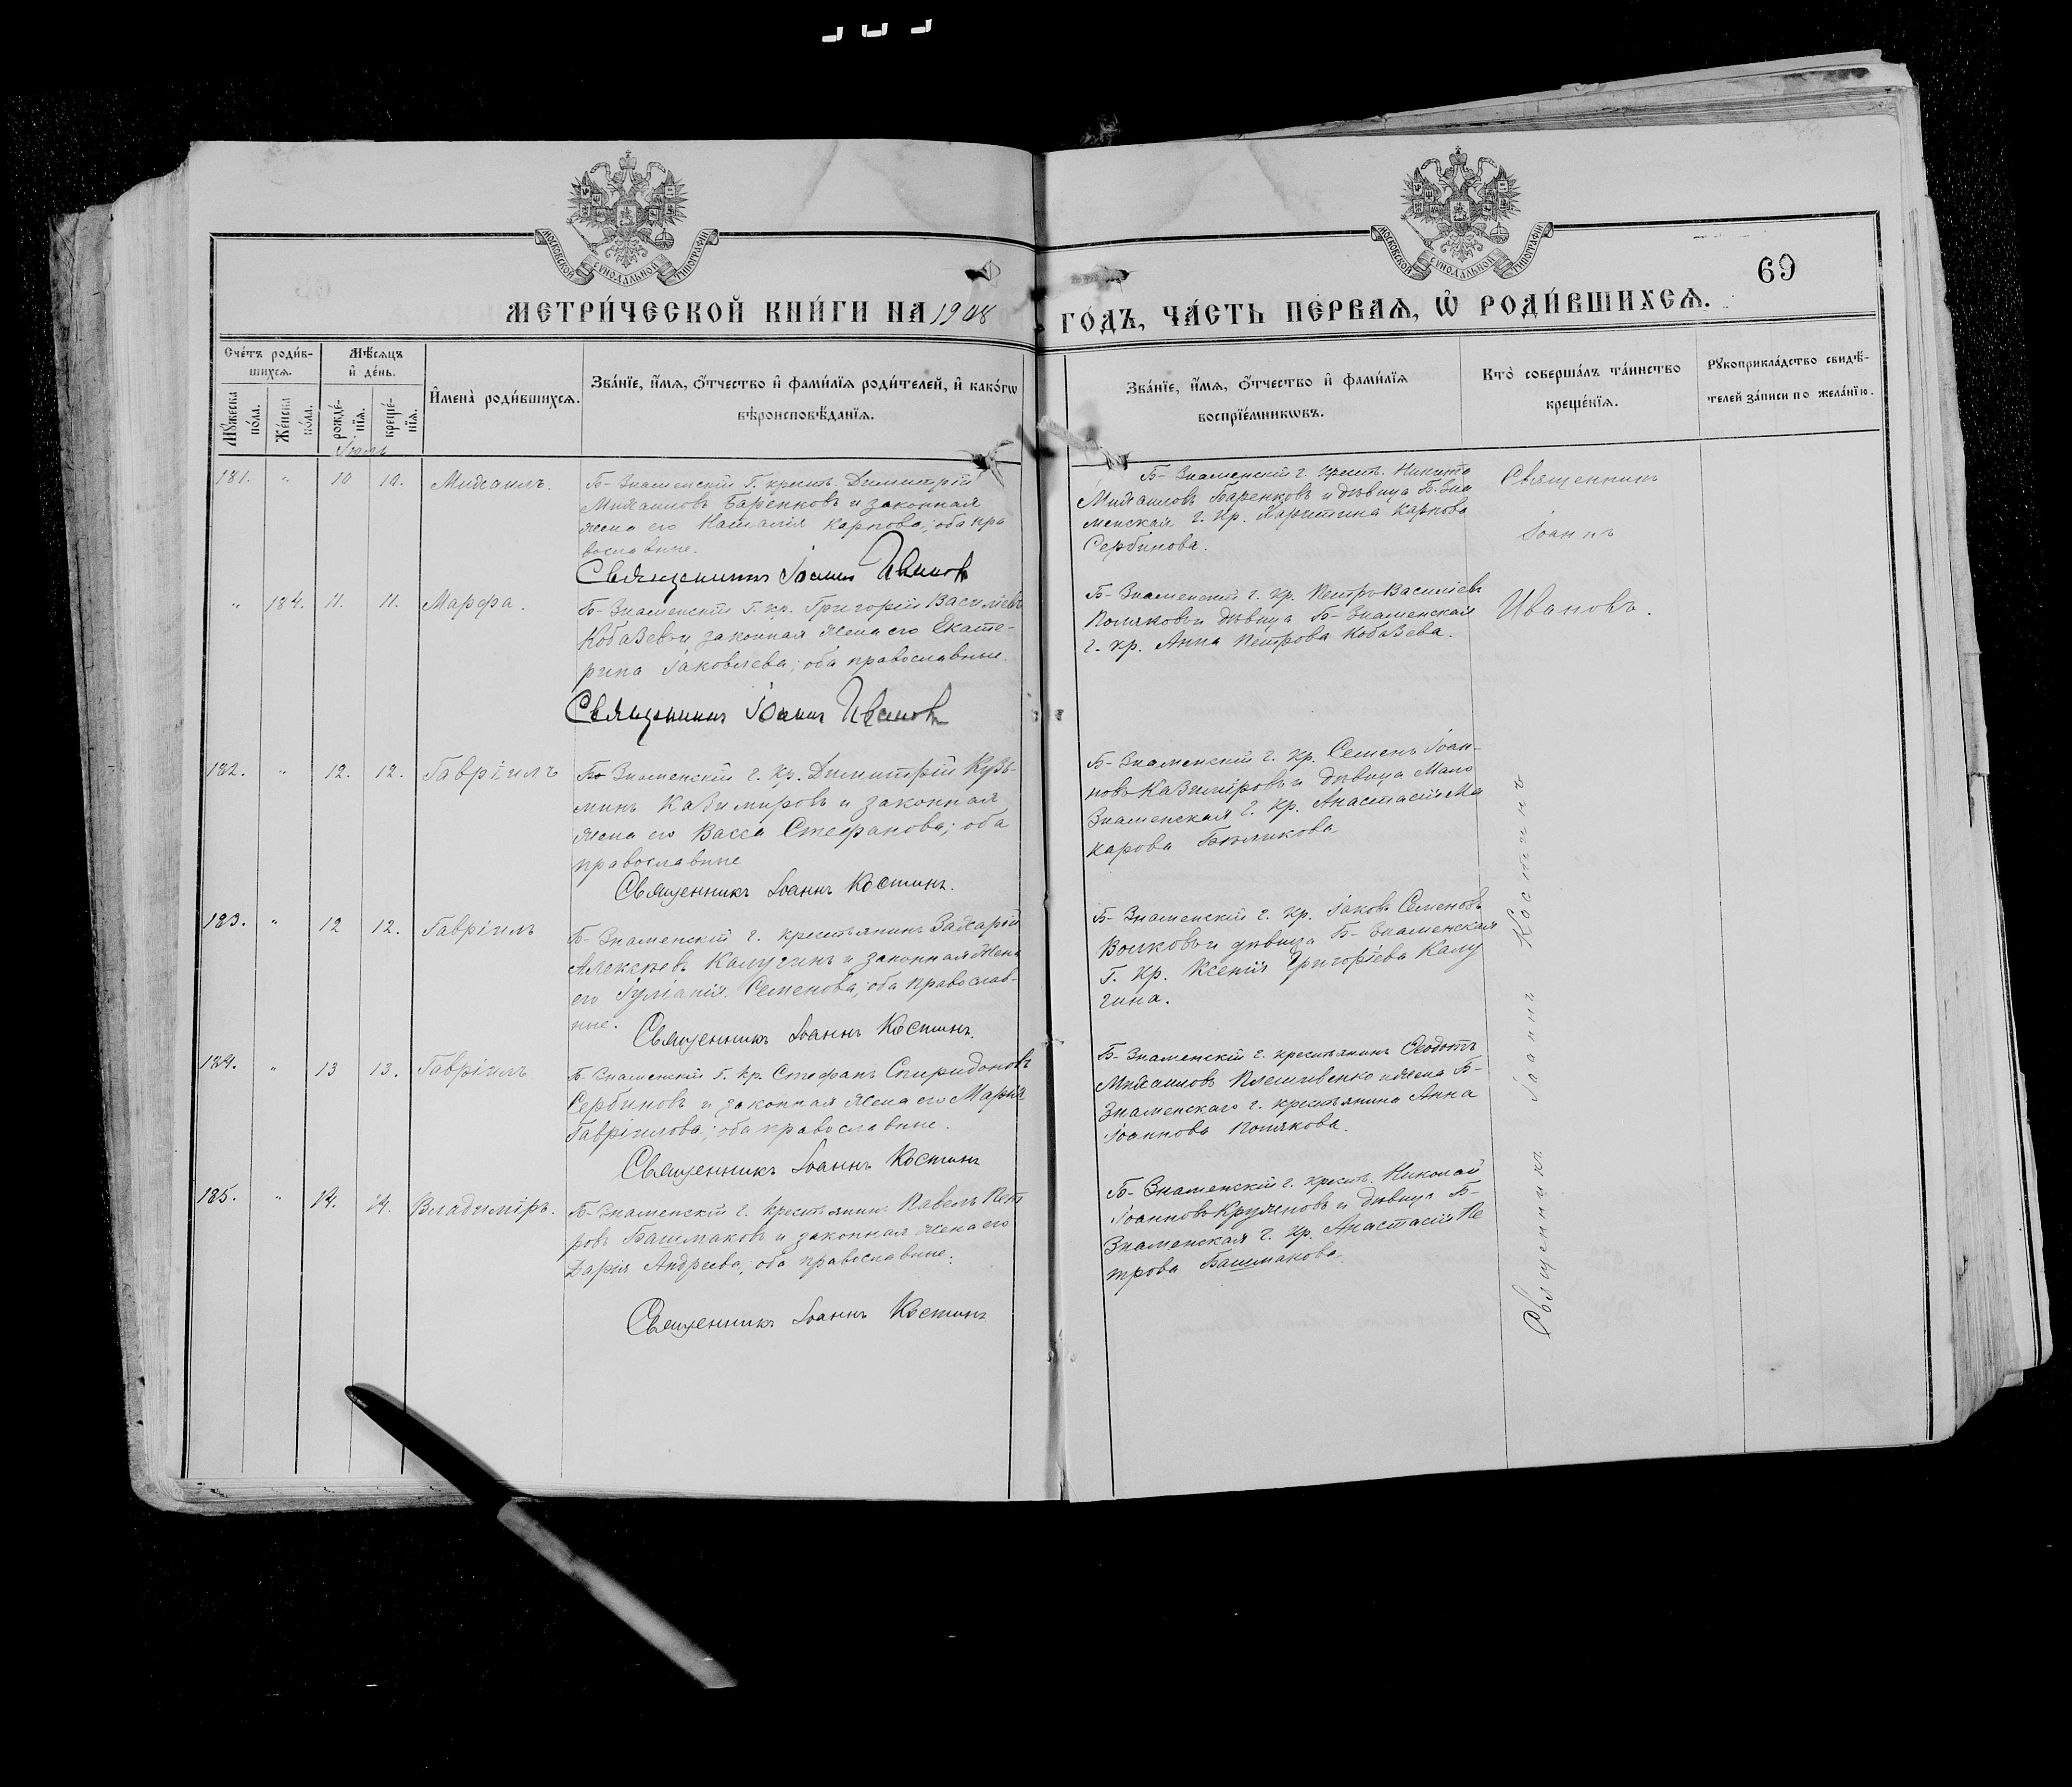 МОСКОВСКОЙ СУНОДАЛЬНОЙ ТИПОГРАФІИ
МОСКОВСКОЙ СУНОДАЛЬНОЙ ТИПОГРАФІИ
69
МЕТРИ́ЧЕСКОЙ КНИ́ГИ НА 1908 ГО́ДЪ, ЧА́СТЬ ПЕ́РВАЯ, Ѡ҆ РОДИ́ВШИХСѦ.
Сче́тъ роди́в-
шихсѧ.
Мꙋ́жеска по́ла.
Же́нска по́ла.
Мѣ́сѧцъ
и҆ де́нь.
рожде́-
нїѧ.
креще́-
нїѧ.
И҆мена̀ роди́вшихсѧ.
Зва́нїе, и҆́мѧ, ѻ҆́тчество и҆ фами́лїѧ роди́телей, и҆ како́гѡ
вѣроисповѣ́данїѧ.
Зва́нїе, и҆́мѧ, ѻ҆́тчество и҆ фами́лїѧ
воспрїе́мникѡвъ.
Кто̀ соверша́лъ та́инство
креще́нїѧ.
Рꙋкоприкла́дство свидѣ́-
телей за́писи по жела́нїю.
Іюль
181. " 10 10. Михаилъ.
Б-Знаменскій г. крест. Димитрій
Михаиловъ Баренковъ и законная
жена его Наталія Карпова; оба пра
вославные.
Священникъ Іоаннъ Ивановъ
Б-Знаменскій г. крест. Никита
Михаиловъ Баренковъ и дѣвица Б. Зна
менская г. кр. Харитина Карпова
Сербинова.
Священникъ
Іоаннъ
Ивановъ.
" 184. 11. 11. Марфа.
Б-Знаменскій г. кр. Григорій Василіевъ
Кобазевъ и законная жена его Екате-
рина Іаковлева; оба православные.
Священникъ Іоаннъ Ивановъ
Б-Знаменскій г. кр. Петръ Василіевъ
Поляковъ и дѣвица Б-Знаменская
г. кр. Анна Петрова Кобазева.
182. " 12. 12. Гавріилъ
Б-Знаменскій г. кр. Димитрій Кузь-
минъ Казимировъ и законная
жена его Васса Стефанова; оба
православные
Священникъ Іоаннъ Костинъ.
Б-Знаменскій г. кр. Семенъ Іоан-
новъ Казиміровъ и дѣвица Мало
Знаменская г. кр. Анастасія Ма
карова Бѣликова
183. " 12 12. Гавріилъ
Б-Знаменскій г. крестьянинъ Захарій
Алексѣевъ Калугинъ и законная жена
его Іуліанія Семенова; оба православ-
ные.
Священникъ Іоаннъ Костинъ.
Б-Знаменскій г. кр. Іаковъ Семеновъ
Волковъ и дѣвица Б-Знаменская
г. кр. Ксенія Григоріева Калу
гина.
184. " 13 13. Гавріилъ
Б-Знаменскій г. кр. Стефанъ Спиридоновъ
Сербиновъ и законная жена его Марія
Гавріилова; оба православные.
Священникъ Іоаннъ Костинъ
Б-Знаменскій г. крестьянинъ Ѳеодотъ
Михаиловъ Плешивенко и жена Б-
Знаменскаго г. крестьянина Анна
Іоаннова Полякова.
185. " 14. 14. Владиміръ.
Б-Знаменскій г. крестьянинъ Павелъ Пет
ровъ Башмаковъ и законная жена его
Дарія Андреева; оба православные.
Священникъ Іоаннъ Костинъ
Б-Знаменскій г. крест. Николай
Іоанновъ Крузяновъ и дѣвица Б-
Знаменская г. кр. Анастасія Пе
трова Башмакова
Священникъ Іоаннъ Костинъ